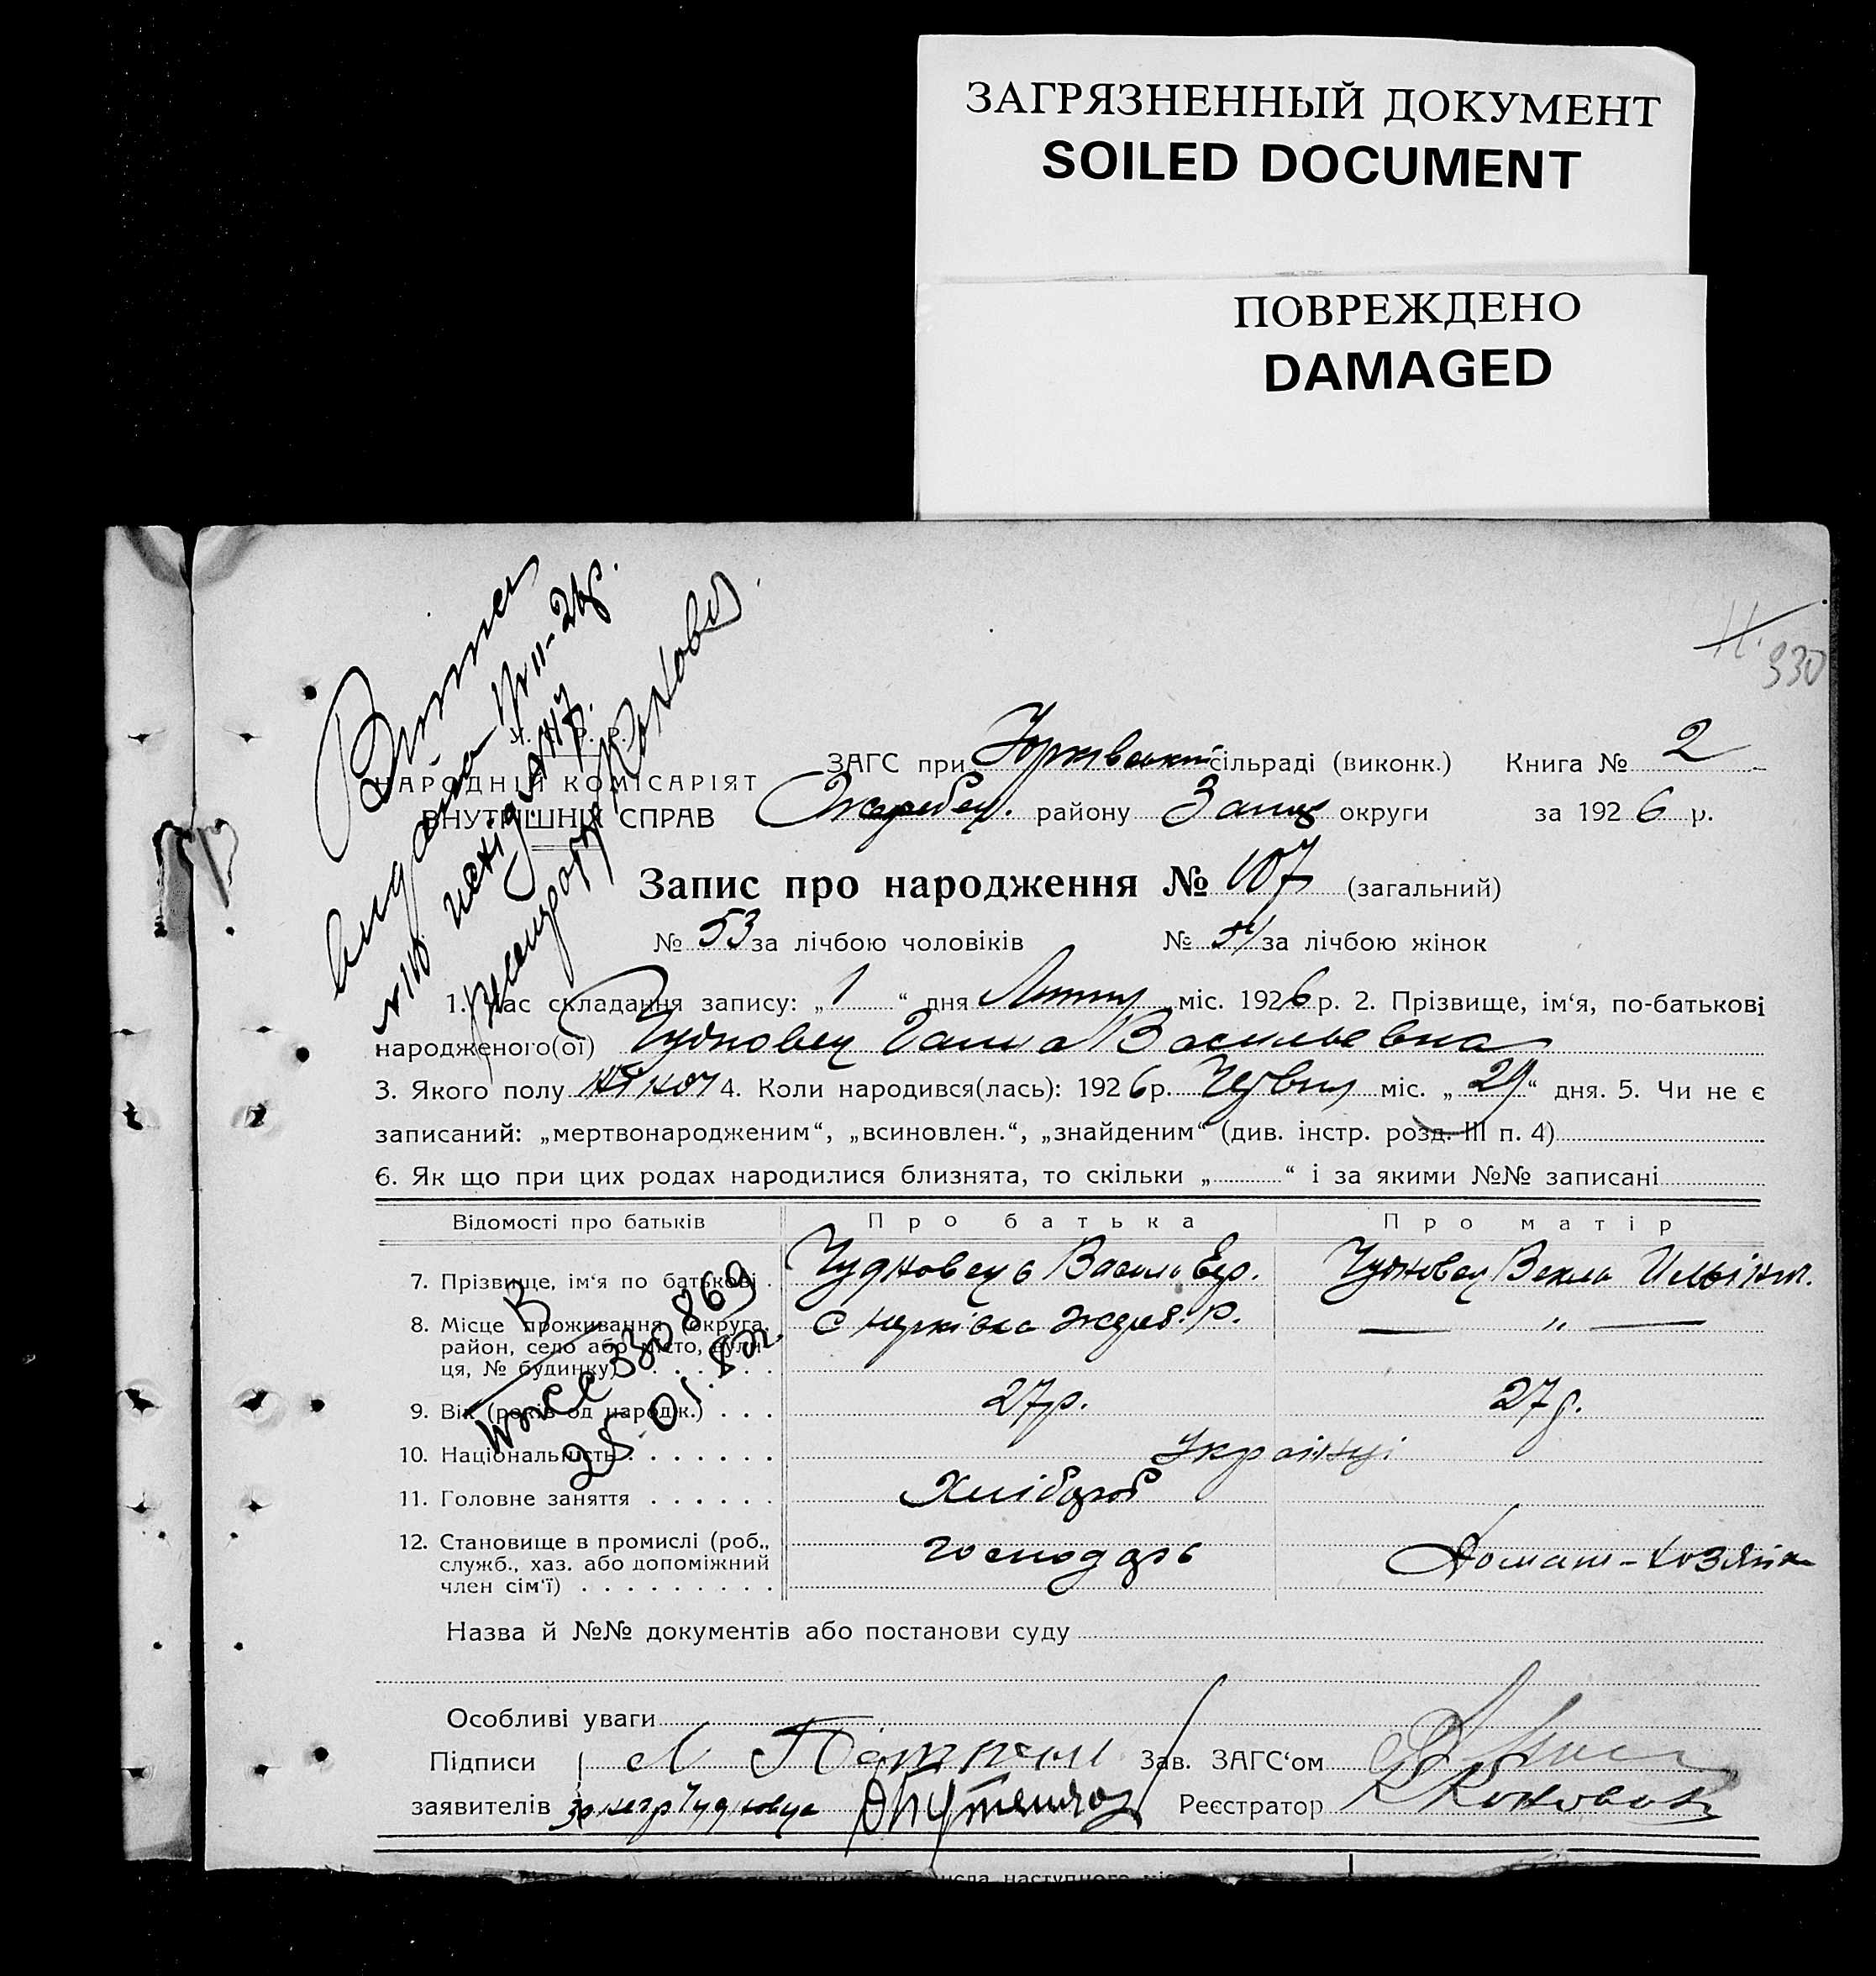 ЗАГРЯЗНЕННЫЙ ДОКУМЕНТ
SOILED DOCUMENT
ПОВРЕЖДЕНО
DAMAGED
330
Витяг
видано
НАРОДНІЙ КОМІСАРІЯТ
ВНУТРІШНІХ СПРАВ
ЗАГС при Юрківській сільраді (виконк.) Книга № 2
Жеребец. району Запор округи за 1926 р.
Запис про народження № 107 (загальний)
№ 53 за лічбою чоловіків № 54 за лічбою жінок
1. Час складання запису: „1“ дня Липня міс. 1926 р. 2. Прізвище, ім‘я, по-батькові
народженого(ої) Чудновец Ганна Васильевна
3. Якого полу жіноч 4. Коли народився(лась): 1926 р. Червня міс. „29“ дня. 5. Чи не є
записаний: „мертвонародженим“, „всиновлен.“, „знайденим“ (див. інстр. розд. III п. 4)
6. Як що при цих родах народилися близнята, то скільки „ “ і за якими №№ записані
Відомості про батьків Про батька Про матір
7. Прізвище, ім‘я по батькові . Чудновець Василь Чудновец Векла
8. Місце проживання (округа, с Юрківка Жереб. р. — „ —
район, село або місто, вули-
ця, № будинку)
9. Вік (років од народж.) . . . 27 р. 27 р.
10. Національність . . . . . . Українці
11. Головне заняття . . . . . . Хлібороб
12. Становище в промислі (роб., господарь Домаш-хозяйка
служб., хаз. або допоміжний
член сім‘ї) . . . . . . . . .
330869
25.01.
Назва й №№ документів або постанови суду
Особливі уваги
Підписи Зав. ЗАГС‘ом
заявителів Реєстратор
наступного